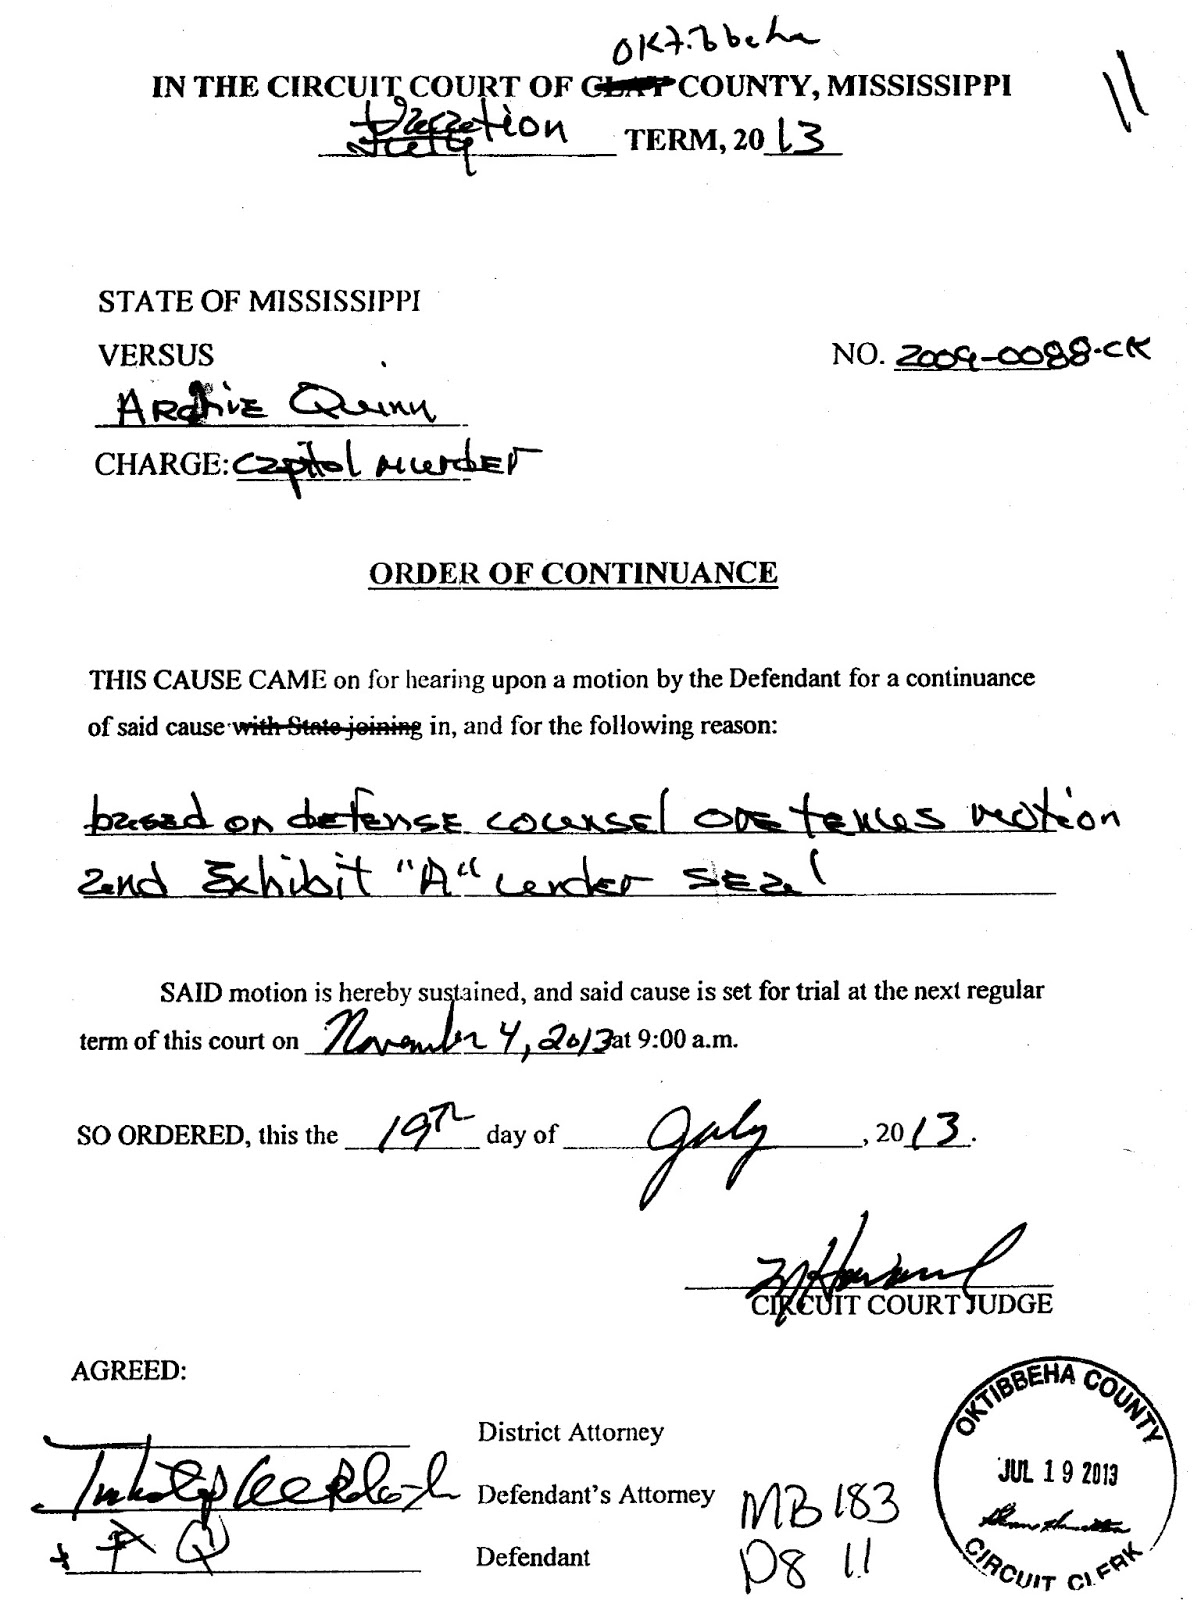 OKtibbeha
IN THE CIRCUIT COURT OF CLAY COUNTY, MISSISSIPPI
11
TERM, 2013
STATE OF MISSISSIPPI
VERSUS
NO. 2009-0088-CK
Archie Quinn
CHARGE: Capitol Murder
ORDER OF CONTINUANCE
THIS CAUSE CAME on for hearing upon a motion by the Defendant for a continuance
of said cause with State joining in, and for the following reason:
based on defense counsel ore tenus motion
and Exhibit "A" under seal
SAID motion is hereby sustained, and said cause is set for trial at the next regular
term of this court on November 4, 2013 at 9:00 a.m.
SO ORDERED, this the 19th day of July, 2013.
CIRCUIT COURT JUDGE
AGREED:
District Attorney
Defendant's Attorney
+ A Q Defendant
MB 183
pg 11
OKTIBBEHA COUNTY
JUL 19 2013
CIRCUIT CLERK